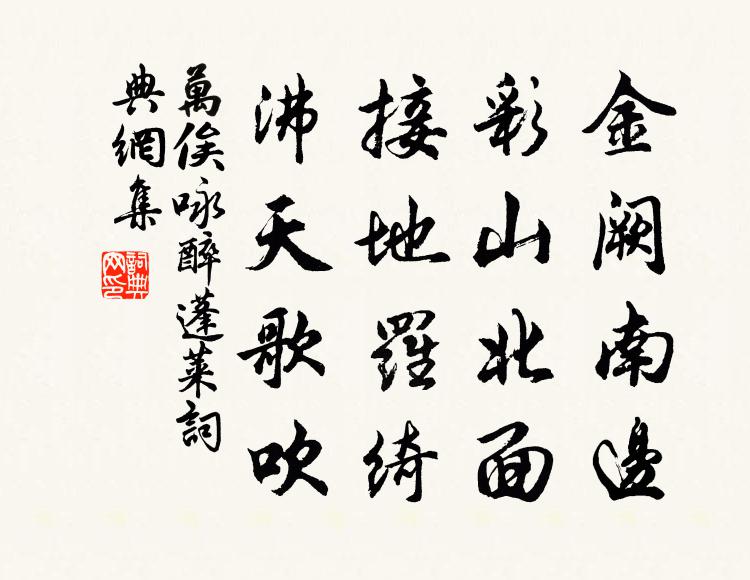 金闕南邊
彩山北面
接地羅綺
沸天歌吹
萬俟咏醉蓬萊詞
典網集
詞典网印